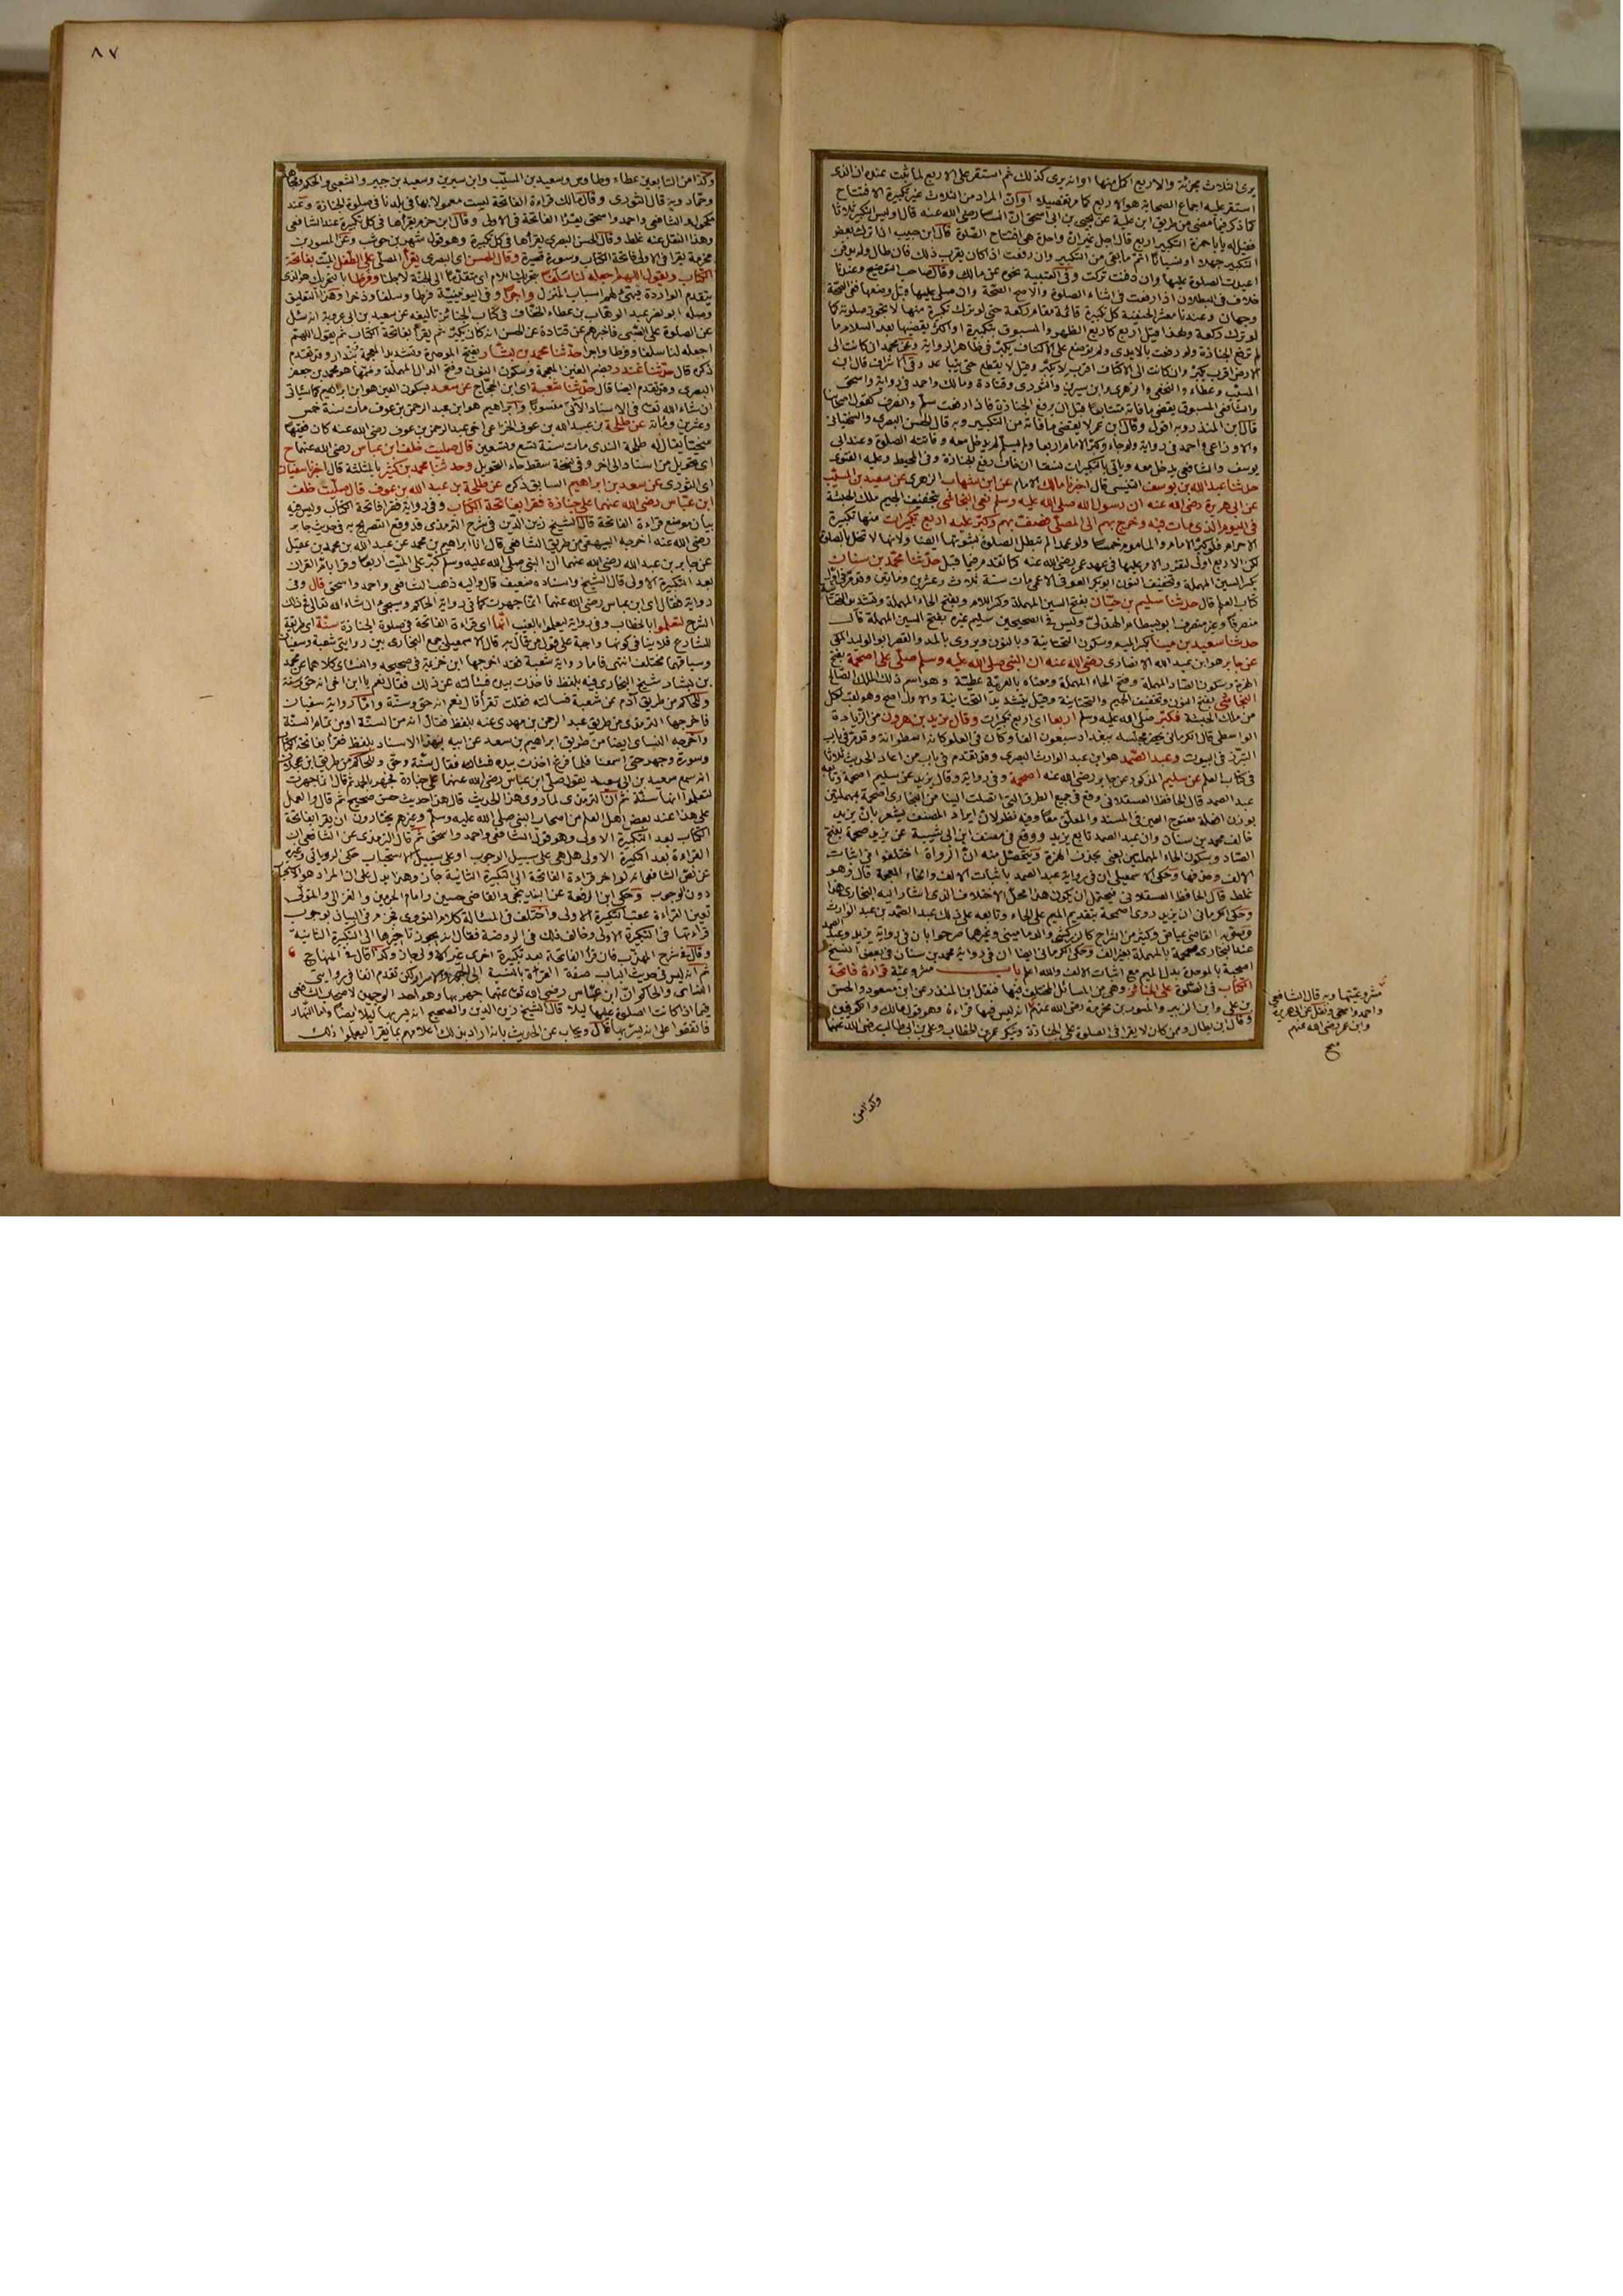 يرى الثلاث مجزئة والاربع اكمل منها او انه يرى كذلك ثم استقر على الاربع لما ثبت عنده ان الذى
استقر عليه اجماع الصحابة هو الاربع كما مر تفصيله او ان المراد من الثلاث غير تكبيرة الافتتاح
كما ذكر فيما مضى من طريق ابن علية عن يحيى بن ابى اسحق ان انسا رضى الله عنه قال وليس التكبير ثلاثا
فقيل له يا با حمزة التكبير اربع قال اجل غير ان واحدة هى افتتاح الصلوة قال ابن حبيب اذا ترك بعض
التكبير جهلا او نسيانا اتم ما بقى من التكبير وان رفعت اذا كان بقرب ذلك فان طال ولم يدفن
اعيدت الصلوة عليها وان دفنت تركت وفى العتبية نحوه عن مالك وقال صاحب التوضيح وعندنا
خلاف فى البطلان اذا رفعت فى اثناء الصلوة والاصح الصحة وان صلى عليها قبل وضعها ففى الصحة
وجهان وعندنا معشر الحنفية كل تكبيرة قائمة مقام ركعة حتى لو ترك تكبيرة منها لا تجوز صلوته كما
لو ترك ركعة ولهذا قيل اربع كاربع الظهر والمسبوق بتكبيرة او اكثر يقضيها بعد السلام ما
لم ترفع الجنازة ولو رفعت بالايدى ولم توضع على الاكتاف يكبر فى ظاهر الرواية وعن محمد ان كانت الى
الارض اقرب يكبر وان كانت الى الاكتاف اقرب لا يكبر وقيل لا يقطع حتى
المسيب وعطاء والنخعى والزهرى وابن سيرين والثورى وقتادة ومالك واحمد فى رواية واسحق
والشافعى المسبوق يقضى ما فاته متتابعا قبل ان يرفع الجنازة فاذا رفعت سلم وانصرف كقول اصحابنا
قال ابن المنذر وبه اقول وقال ابن عمر لا يقضى ما فاته من التكبير وبه قال الحسن البصرى والسختيانى
والاوزاعى واحمد فى رواية ولو جاء وكبر الامام اربعا ولم يسلم لم يدخل معه وفاتته الصلوة وعند ابى
يوسف والشافعى يدخل معه وياتى بالتكبيرات نسقا ان خاف رفع الجنازة وفى المحيط وعليه الفتوى
حدثنا عبد الله بن يوسف التنيسى قال اخبرنا مالك الامام عن ابن شهاب الزهرى عن سعيد بن المسيب
عن ابى هريرة رضى الله عنه ان رسول الله صلى الله عليه وسلم نعى النجاشى بتخفيف الجيم ملك الحبشة
فى اليوم الذى مات فيه وخرج بهم الى المصلى فصف بهم وكبر عليه اربع تكبيرات منها تكبيرة
الاحرام فلو كبر الامام والماموم خمسا ولو عمدا لم تبطل الصلوة لثبوتها ايضا ولانها لا تخل بالصلوة
لكن الاربع اولى لتقرر الامر عليها فى عهد عمر رضى الله عنه كما تقدم فيما قبل حدثنا محمد بن سنان
بكسر السين المهملة وتخفيف النون ابو بكر العوفى الاعمى مات سنة ثلاث وعشرين ومائتين وقد مر فى اول
كتاب العلم قال حدثنا سليم بن حيان بفتح السين المهملة وكسر اللام وبفتح الحاء المهملة وتشديد التحتانية
منصرفا وغير منصرف ابو بسطام الهذلى وليس فى الصحيحين سليم غيره بفتح السين المهملة قال
حدثنا سعيد بن مينا بكسر الميم وسكون التحتانية وبالنون ويروى بالمد والقصر ابو الوليد المكى
عن جابر هو ابن عبد الله الانصارى رضى الله عنه ان النبى صلى الله عليه وسلم صلى على اصحمة بفتح
الهمزة وسكون الصاد المهملة وفتح الحاء المهملة ومعناه بالعربية عطية وهو اسم ذلك الملك الصالح
النجاشى بفتح النون وتخفيف الجيم والتحتانية وقيل بتشديد التحتانية والاول اصح وهو لقب لكل
من ملك الحبشة فكبر صلى الله عليه وسلم اربعا اى اربع تكبيرات وقال يزيد بن هرون من الزيادة
الواسطى قال الكرمانى يحضر مجلسه ببغداد سبعون الفا وكان فى العلو كانه اسطوانة وقد مر فى باب
التبرز فى البيوت وعبد الصمد هو ابن عبد الوارث البصرى وقد تقدم فى باب من اعاد الحديث ثلاثا
فى كتاب العلم عن سليم المذكور عن جابر رضى الله عنه اصحمة وفى رواية وقال يزيد عن سليم اصحمة وتابعه
عبد الصمد قال الحافظ العسقلانى وقع فى جميع الطرق التى اتصلت الينا من البخارى اصحمة بمهملتين
بوزن افعلة مفتوح العين فى المسند والمعلق معا وفيه نظر لان ايراد المصنف يشعر بان يزيد
خالف محمد بن سنان وان عبد الصمد تابع يزيد ووقع فى مصنف ابن ابى شيبة عن يزيد صحمة بفتح
الصاد وسكون الحاء المهملتين يعنى بحذف الهمزة ويتحصل منه ان الرواة اختلفوا فى اثبات
الالف وحذفها وحكى الاسمعيلى ان فى رواية عبد الصمد باثبات الالف والخاء المعجمة قال وهو
غلط قال الحافظ العسقلانى فيحتمل ان يكون هذا محل الاختلاف الذى اشار اليه البخارى هذا
وحكى الكرمانى ان يزيد روى اصمحة بتقديم الميم على الحاء وتابعه على ذلك عبد الصمد بن عبد الوارث
وصوبه القاضى عياض وكثير من الشراح كالزركشى والدمامينى وغيرهما صرحوا بان فى رواية يزيد وعبد الصمد
عند البخارى صحمة بالمهملة بغير الف وحكى الكرمانى ايضا ان فى رواية محمد بن سنان فى بعض النسخ
اصحبة بالموحدة بدل الميم مع اثبات الالف والله اعلم باب مشروعية قراءة فاتحة
الكتاب فى الصلوة على الجنائز وهى من المسائل المختلف فيها فنقل ابن المنذر عن ابن مسعود والحسن
بن على وابن الزبير والمسور بن مخرمة رضى الله عنهم انه ليس فيها قراءة وهو قول مالك والكوفيين
وقال ابن بطال وممن كان لا يقرأ فى الصلوة على الجنازة وينكر عمر بن الخطاب وعلى بن ابى طالب رضى الله عنهما
مشروعيتها وبه قال الشافعى
واحمد واسحق ونقل عن ابى هريرة
وابن عمر رضى الله عنهم
صح
وكذا من
٨٧
وكذا من التابعين عطاء وطاوس وسعيد بن المسيب وابن سيرين وسعيد بن جبير والشعبى والحكم ومجاهد
وحماد وبه قال الثورى وقال مالك قراءة الفاتحة ليست معمولا بها فى بلدنا فى صلوة الجنازة وعند
مكحول والشافعى واحمد واسحق يقرأ الفاتحة فى الاولى وقال ابن حزم يقرأها فى كل تكبيرة عند الشافعى
وهذا النقل عنه غلط وقال الحسن البصرى يقرأها فى كل تكبيرة وهو قول شهر بن حوشب وعن المسور بن
مخرمة يقرأ فى الاولى فاتحة الكتاب وسورة قصيرة وقال الحسن اى البصرى يقرأ المصلى على الطفل الميت بفاتحة
الكتاب ويقول اللهم اجعله لنا سلفا بتحريك اللام اى متقدما الى الجنة لاجلنا وفرطا بالتحريك هو الذى
يتقدم الواردة فيهيئ لهم اسباب المنزل واجرا وفى اليونينية فرطا وسلفا وذخرا وهذا التعليق
وصله ابو نصر عبد الوهاب بن عطاء الخفاف فى كتاب الجنائز تاليفه عن سعيد بن ابى عروبة انه سئل
عن الصلوة على الصبى فاخبرهم عن قتادة عن الحسن انه كان يكبر ثم يقرأ بفاتحة الكتاب ثم يقول اللهم
اجعله لنا سلفا وفرطا واجرا حدثنا محمد بن بشار بفتح الموحدة وتشديد المعجمة بندار وقد تقدم
ذكره قال حدثنا غندر بضم الغين المعجمة وسكون النون وفتح الدال المهملة وضمها هو محمد بن جعفر
البصرى وقد تقدم ايضا قال حدثنا شعبة اى ابن الحجاج عن سعد بسكون العين هو ابن ابراهيم كما سياتى
ان شاء الله تعالى فى الاسناد الآتى منسوبا وابراهيم هو ابن عبد الرحمن بن عوف مات سنة خمس
وعشرين ومائة عن طلحة بن عبد الله بن عوف الخزاعى اخى عبد الرحمن بن عوف رضى الله عنه كان فقيها
سخيا يقال له طلحة الندى مات سنة تسع وتسعين قال صليت خلف ابن عباس رضى الله عنهما ح
اى تحويل من اسناد الى آخر وفى نسخة سقط حاء التحويل وحدثنا محمد بن كثير بالمثلثة قال اخبرنا سفيان
اى الثورى عن سعد بن ابراهيم السابق ذكره عن طلحة بن عبد الله بن عوف قال صليت خلف
ابن عباس رضى الله عنهما على جنازة فقرأ بفاتحة الكتاب وفى رواية فقرأ فاتحة الكتاب وليس فيه
بيان موضع قراءة الفاتحة قال الشيخ زين الدين فى شرح الترمذى قد وقع التصريح به فى حديث جابر
رضى الله عنه اخرجه البيهقى من طريق الشافعى قال انا ابراهيم بن محمد عن عبد الله بن محمد بن عقيل
عن جابر بن عبد الله رضى الله عنهما ان النبى صلى الله عليه وسلم كبر على الميت اربعا وقرأ بام القران
بعد التكبيرة الاولى قال الشيخ واسناده ضعيف قال واليه ذهب الشافعى واحمد واسحق قال وفى
رواية فقال اى ابن عباس رضى الله عنهما انما جهرت كما فى رواية الحاكم وسيجئ ان شاء الله تعالى فى ذلك
الشرح لتعلموا بالخطاب وفى رواية ليعلموا بالغيب انها اى قراءة الفاتحة فى صلوة الجنازة سنة اى طريقة
للشارع فلا ينافى كونها واجبة على قول من قال به قال الاسمعيلى جمع البخارى بين روايتى شعبة وسفيان
وسياقهما مختلف انتهى فاما رواية شعبة فقد اخرجها ابن خزيمة فى صحيحه والنسائى كلاهما عن محمد
بن بشار شيخ البخارى فيه بلفظ فاخذت بيده فسالته عن ذلك فقال نعم يا ابن اخى انه حق وسنة
وللحاكم من طريق آدم عن شعبة فسالته فقلت تقرأ قال نعم انه حق وسنة واما رواية سفيان
فاخرجها الترمذى من طريق عبد الرحمن بن مهدى عنه بلفظ فقال انه من السنة او من تمام السنة
واخرجه النسائى ايضا من طريق ابراهيم بن سعد عن ابيه بهذا الاسناد بلفظ فقرأ بفاتحة الكتاب
وسورة وجهر حتى اسمعنا فلما فرغ اخذت بيده فسالته فقال سنة وحق وللحاكم من طريق ابن عجلان
انه سمع سعيد بن ابى سعيد يقول صلى ابن عباس رضى الله عنهما على جنازة فجهر بالحمد ثم قال انما جهرت
لتعلموا انها سنة ثم ان الترمذى لما روى هذا الحديث قال هذا حديث حسن صحيح ثم قال والعمل
على هذا عند بعض اهل العلم من اصحاب النبى صلى الله عليه وسلم وغيرهم يختارون ان يقرأ بفاتحة
الكتاب بعد التكبيرة الاولى وهو قول الشافعى واحمد واسحق ثم قال الترمذى عن الشافعى ان
القراءة بعد التكبيرة الاولى هل هى على سبيل الوجوب او على سبيل الاستحباب حكى الرويانى وغيره
عن نص الشافعى انه لو اخر قراءة الفاتحة الى التكبيرة الثانية جاز وهذا يدل على ان المراد هو الاستحباب
دون الوجوب وحكى ابن الرفعة عن البندنيجى والقاضى حسين وامام الحرمين والغزالى والمتولى
تعين القراءة عقب التكبيرة الاولى واختلف فى المسألة كلام النووى فجزم فى البيان بوجوب
قراءتها فى التكبيرة الاولى وخالف ذلك فى الروضة فقال انه يجوز تاخيرها الى التكبيرة الثانية
وقال فى شرح المهذب فان قرأ الفاتحة بعد تكبيرة اخرى غير الاولى جاز وكذا قال فى المنهاج
ثم انه ليس فى حديث الباب صفة القراءة بالنسبة الى الجهر والاسرار لكن تقدم آنفا فى روايتى
النسائى والحاكم ان ابن عباس رضى الله تعالى عنهما جهر بها وهو احد الوجهين لاصحاب الشافعى
فيما اذا كانت الصلوة عليها ليلا قال الشيخ زين الدين والصحيح انه يسر بها ليلا ايضا واما النهار
فاتفقوا على انه يسر بها قال ويجاب عن الحديث بانه اراد بذلك اعلامهم بما يقرأ ليعلموا ذلك